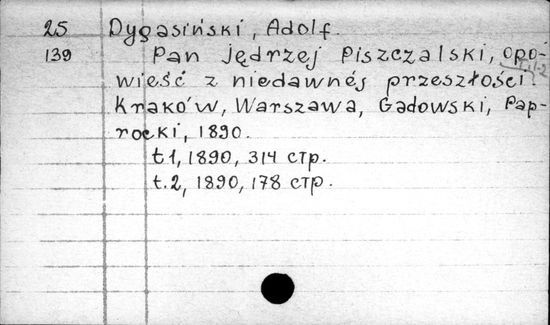 25 Dygasiński, Adolf.
139 Pan Jędrzej Piszczalski, opo-
wieść z niedawnéj przeszłości.
t.1-2
Kraków, Warszawa, Gadowski, Pap-
rocki, 1890.
t.1, 1890, 314 стр.
t.2, 1890, 178 стр.